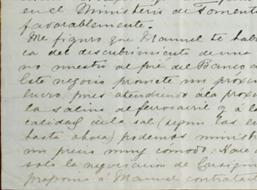 en el Ministerio de Fomento
favorablemente.
Me figuro que Manuel te habl
ca del descubrimiento de una
no nuestro al pié del Banco
Este negocio promete un proxim
lucro pues atendiendo á la proxi
la Salina de ferrocarril y á l
calidad de la sal (segun las en
hasta ahora) podemos minist
un precio muy comodo. Nace
solo la negociacion de Consign
proponia á Manuel contratar